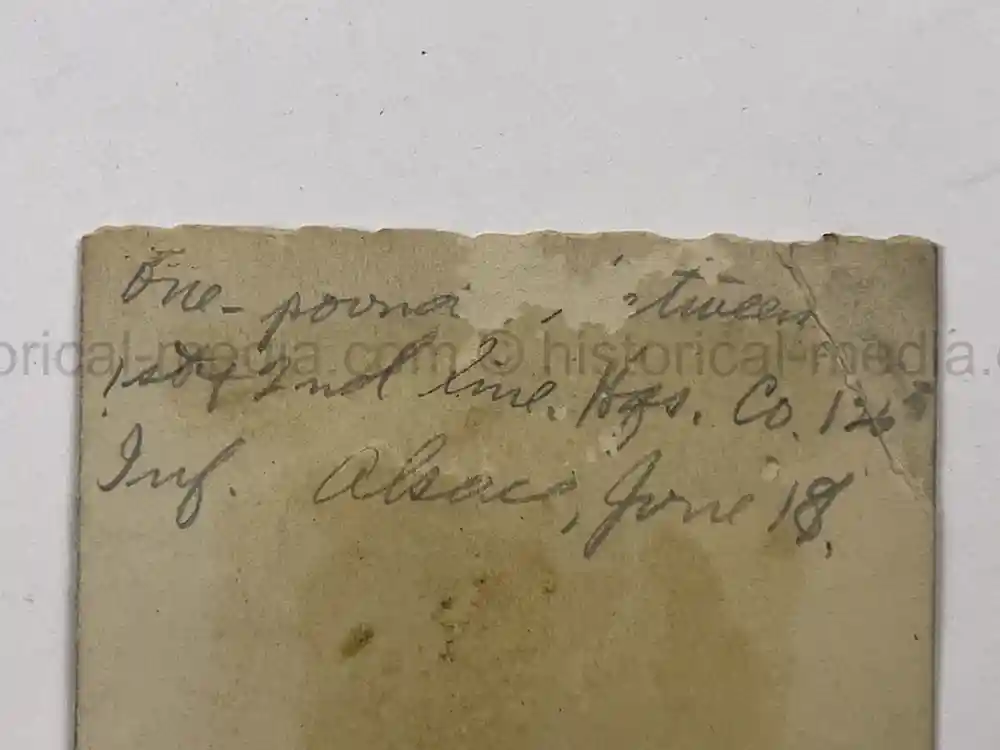 One-pound
1st & 2nd line. Hqs. Co. 126
Inf. Alsace, June 18.
historical-media.com © historical-media.com